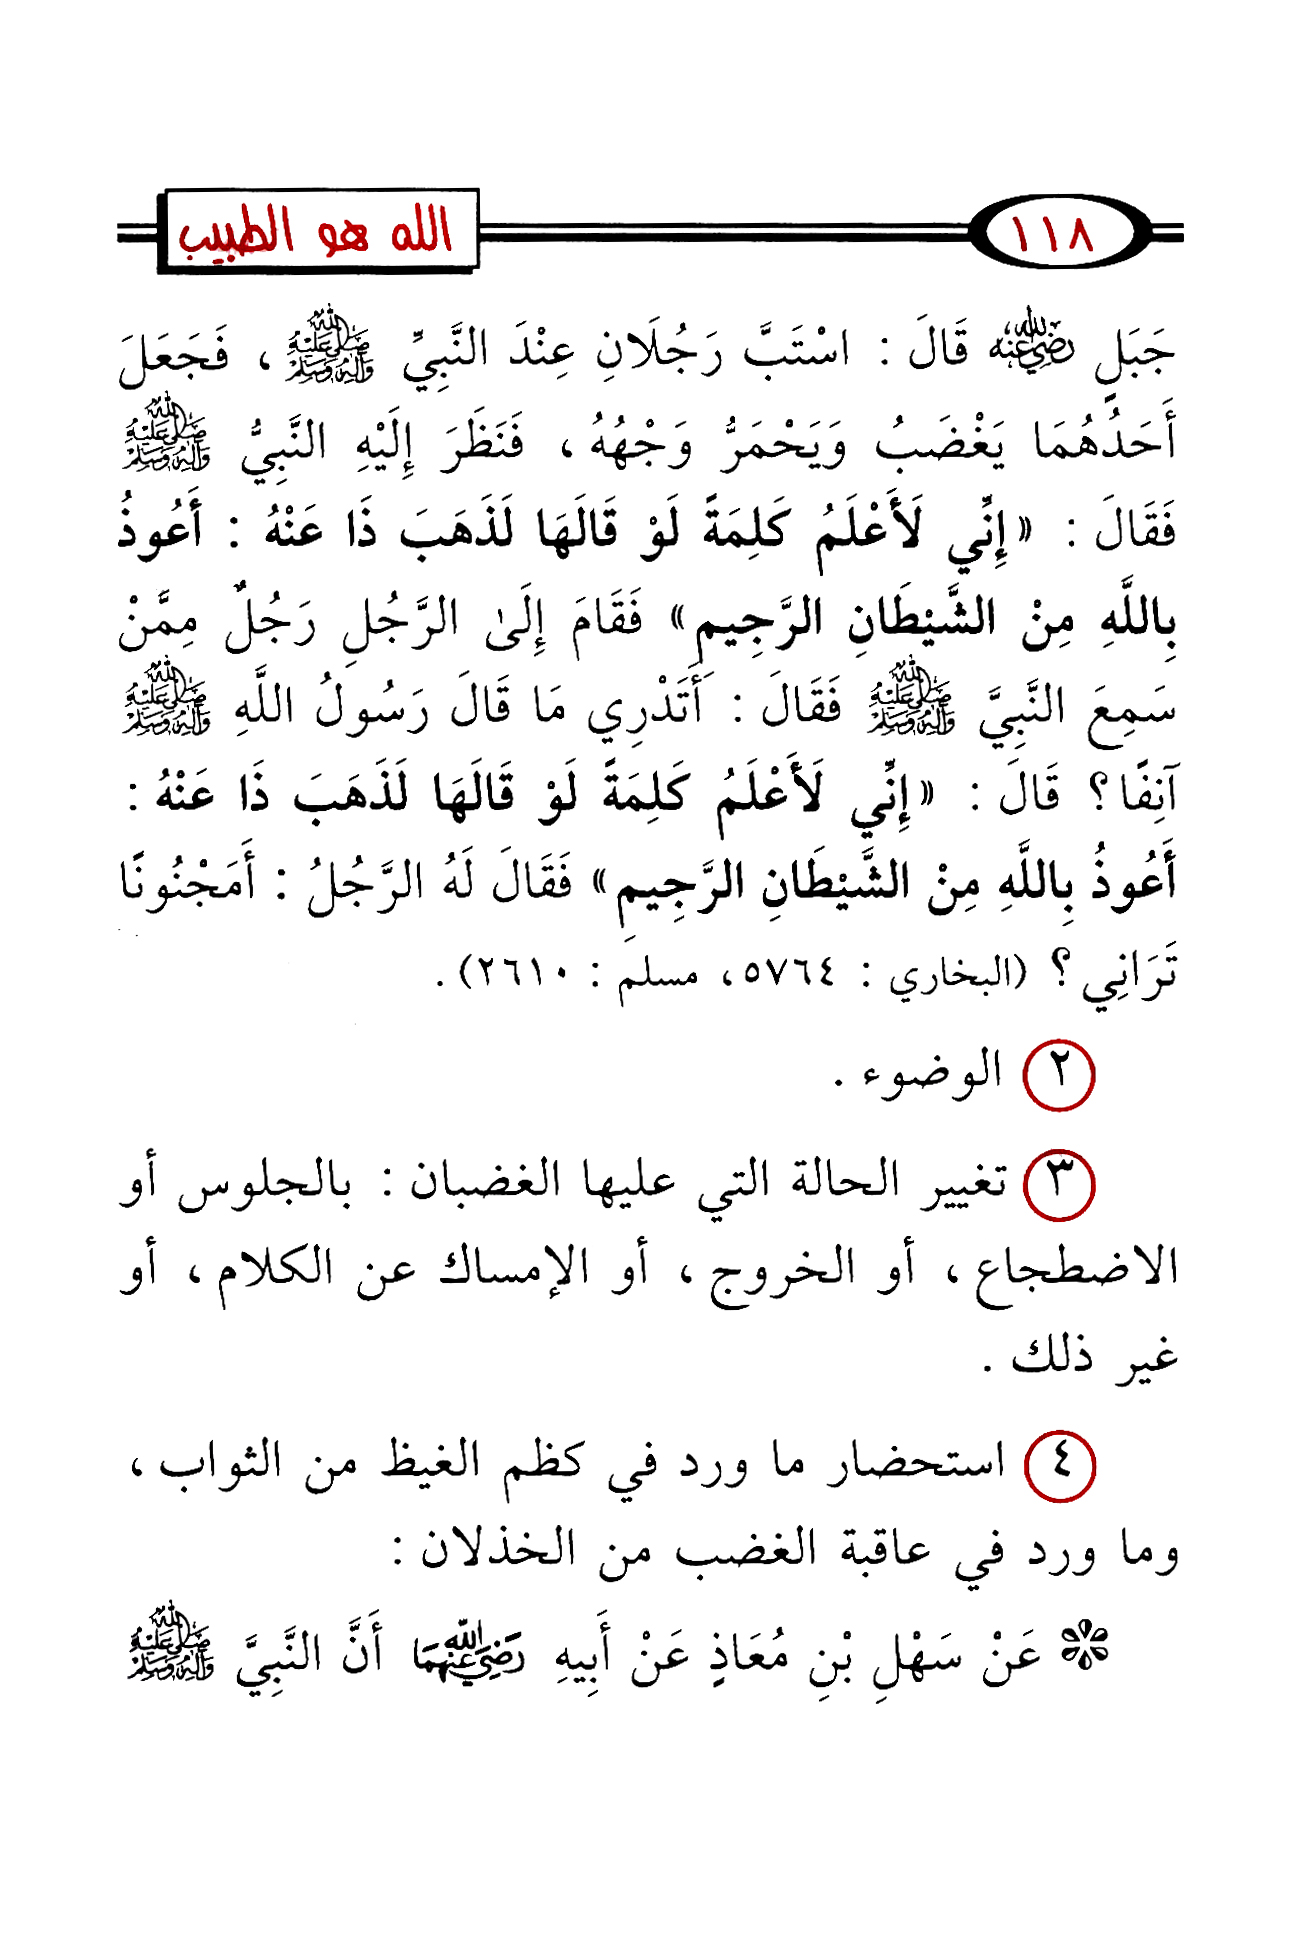 ١١٨
الله هو الطبيب
جَبَلٍ رضي الله عنه قَالَ : اسْتَبَّ رَجُلَانِ عِنْدَ النَّبِيِّ صلى الله عليه وآله وسلم ، فَجَعَلَ
أَحَدُهُمَا يَغْضَبُ وَيَحْمَرُّ وَجْهُهُ ، فَنَظَرَ إِلَيْهِ النَّبِيُّ صلى الله عليه وآله وسلم
فَقَالَ : «إِنِّي لَأَعْلَمُ كَلِمَةً لَوْ قَالَهَا لَذَهَبَ ذَا عَنْهُ : أَعُوذُ
بِاللَّهِ مِنْ الشَّيْطَانِ الرَّجِيمِ» فَقَامَ إِلَىٰ الرَّجُلِ رَجُلٌ مِمَّنْ
سَمِعَ النَّبِيَّ صلى الله عليه وآله وسلم فَقَالَ : أَتَدْرِي مَا قَالَ رَسُولُ اللَّهِ صلى الله عليه وآله وسلم
آنِفًا؟ قَالَ : «إِنِّي لَأَعْلَمُ كَلِمَةً لَوْ قَالَهَا لَذَهَبَ ذَا عَنْهُ :
أَعُوذُ بِاللَّهِ مِنْ الشَّيْطَانِ الرَّجِيمِ» فَقَالَ لَهُ الرَّجُلُ : أَمَجْنُونًا
تَرَانِي؟ (البخاري : ٥٧٦٤ ، مسلم : ٢٦١٠) .
٢ الوضوء .
٣ تغيير الحالة التي عليها الغضبان : بالجلوس أو
الاضطجاع ، أو الخروج ، أو الإمساك عن الكلام ، أو
غير ذلك .
٤ استحضار ما ورد في كظم الغيظ من الثواب ،
وما ورد في عاقبة الغضب من الخذلان :
عَنْ سَهْلِ بْنِ مُعَاذٍ عَنْ أَبِيهِ رضي الله عنهما أَنَّ النَّبِيَّ صلى الله عليه وآله وسلم